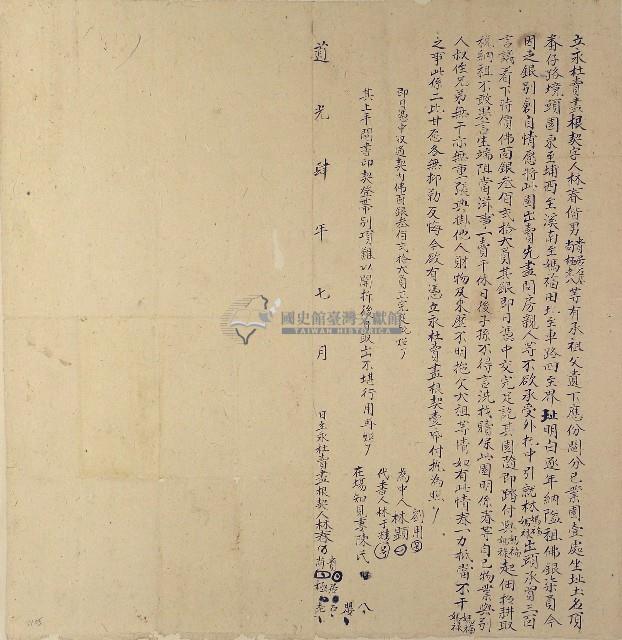 立永杜賣盡根契字人林春偕男
等有承祖父遺下應份鬮分已業園壹處坐址土名頂
番仔路墘頭園東至埔西至溪南至媽福田北至車路四至界址明白逐年納隘租佛銀柒員今
因乏銀別創自情愿將此園出賣先盡問房親人等不欲承受外托中引就林媽福媽祿出頭承買三面
言議着下時價佛面銀叁佰弍拾大員其銀即日憑中交完足訖其園隨即踏付與媽福媽祿起佃招耕取
稅納租不敢異言生端阻當滋事一賣千休日後子孫不得言洗找贖保此園明係春等自己物業與別
人叔侄兄弟無干亦無重張典掛他人財物及來歷不明拖欠大租等情如有此情春一力抵當不干媽福媽祿
之事此係二比甘愿各無抑勒反悔今欲有憑立永杜賣盡根契壹帋付執為照
即日憑中收過契內佛面銀叁佰弍拾大員正完足批照
其上手鬮書印契登帶別項難以開拆後日取出不堪行用再照
為中人 劉用 林顕
代書人林于
在塲知見妻陳氏
道光肆年七月 日立永杜賣盡根契人林春
國史館臺灣文獻館
TAIWAN HISTORICA